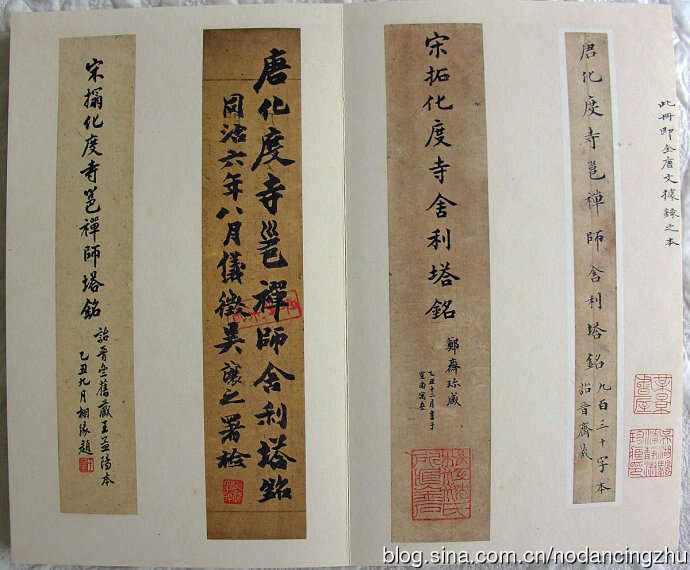 此冊即全唐文據錄之本
唐化度寺邕禪師舍利塔銘
九百三十字本
詒晉齋藏
宋拓化度寺舍利塔銘
鄭齋珍藏
乙丑十二月書于
唐化度寺邕禪師舍利塔銘
同治六年八月儀徵吳讓之署檢
宋搨化度寺邕禪師塔銘
詒晉齋舊藏王孟陽本
乙丑九月栩緣題
blog.sina.com.cn/nodancingzhu